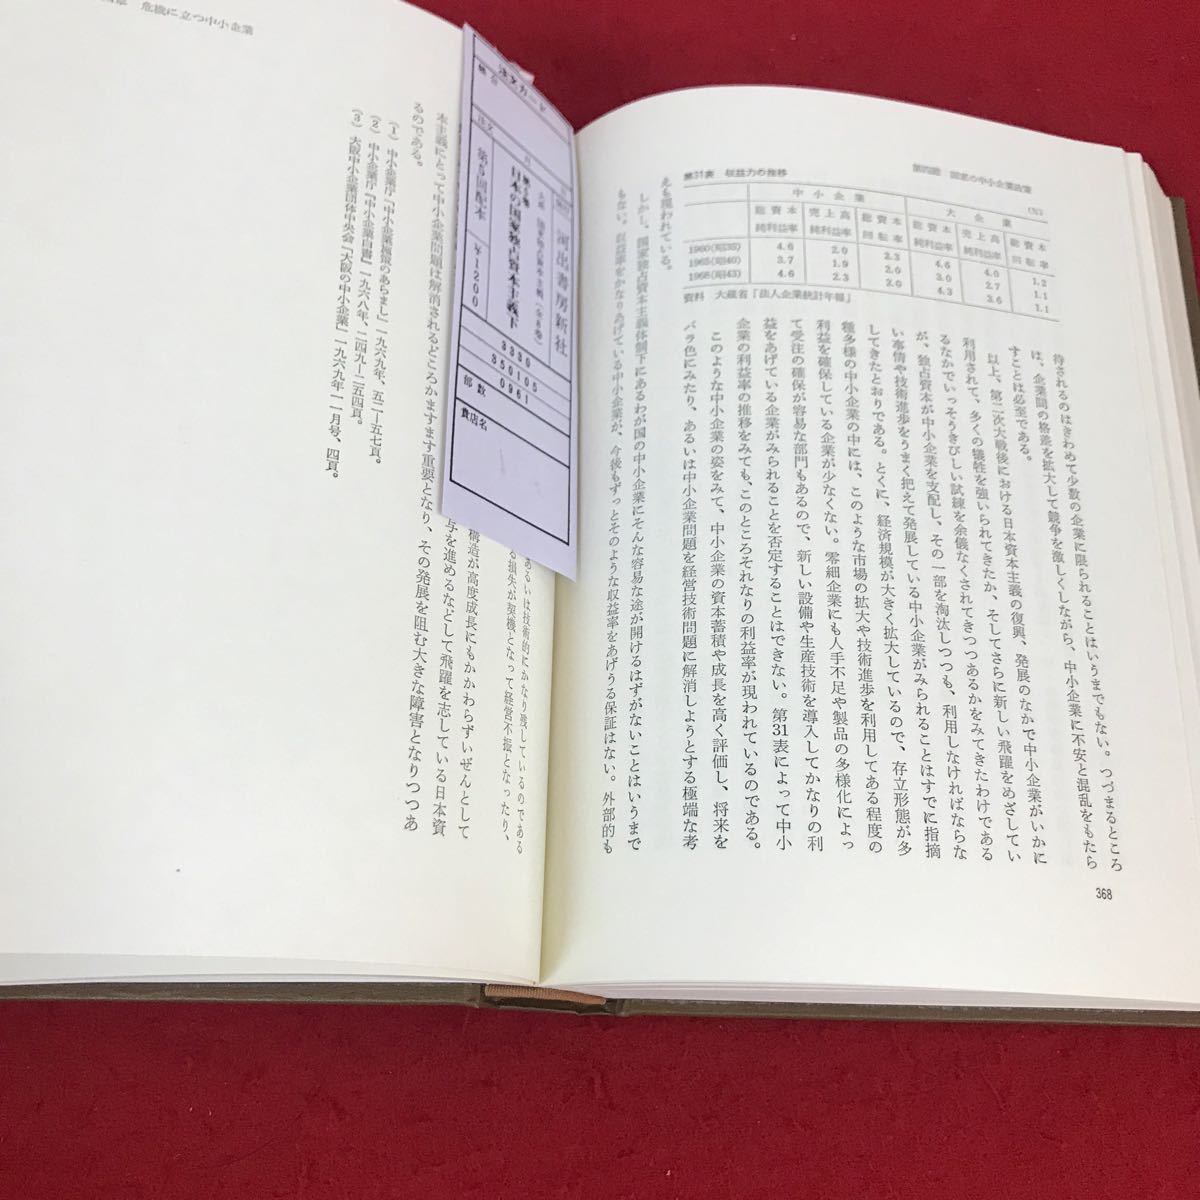 第四篇 国家の中小企業政策
368
待されるのはきわめて少数の企業に限られることはいうまでもない。つづまるところ
は、企業間の格差を拡大して競争を激しくしながら、中小企業に不安と混乱をもたら
すことは必至である。
以上、第二次大戦後における日本資本主義の復興、発展のなかで中小企業がいかに
利用されて、多くの犠牲を強いられてきたか、そしてさらに新しい飛躍をめざしてい
るなかでいっそうきびしい試練を余儀なくされてきつつあるかをみてきたわけである
が、独占資本が中小企業を支配し、その一部を淘汰しつつも、利用しなければならな
い事情や技術進歩をうまく把えて発展している中小企業がみられることはすでに指摘
してきたとおりである。とくに、経済規模が大きく拡大しているので、存立形態が多
種多様の中小企業の中には、このような市場の拡大や技術進歩を利用してある程度の
利益を確保している企業が少なくない。零細企業にも人手不足や製品の多様化によっ
て受注の確保が容易な部門もあるので、新しい設備や生産技術を導入してかなりの利
益をあげている企業がみられることを否定することはできない。第31表によって中小
企業の利益率の推移をみても、このところそれなりの利益率が現われているのである。
このような中小企業の姿をみて、中小企業の資本蓄積や成長を高く評価し、将来を
バラ色にみたり、あるいは中小企業問題を経営技術問題に解消しようとする極端な考
えも現われている。
しかし、国家独占資本主義体制下にあるわが国の中小企業にそんな容易な途が開けるはずがないことはいうまで
もない。収益率をかなりあげている中小企業が、今後もずっとそのような収益率をあげうる保証はない。外部的も
第31表 収益力の推移
(％)
中小企業 大企業
総資本純利益率 売上高純利益率 総資本回転率 総資本純利益率 売上高純利益率 総資本回転率
1960(昭35) 4.6 2.0 2.3 4.6 4.0 1.2
1965(昭40) 3.7 1.9 2.0 3.0 2.7 1.1
1968(昭43) 4.6 2.3 2.0 4.3 3.6 1.1
資料 大蔵省「法人企業統計年報」
章 危機に立つ中小企業
あるいは技術的にかなり残しているのである
る損失が契機となって経営不振となったり、
構造が高度成長にもかかわらずいぜんとして
与を進めるなどとして飛躍を志している日本資
本主義にとって中小企業問題は解消されるどころかますます重要となり、その発展を阻む大きな障害となりつつあ
るのである。
(1) 中小企業庁「中小企業施策のあらまし」一九六九年、五二―五七頁。
(2) 中小企業庁「中小企業白書」一九六八年、二四九―二五四頁。
(3) 大阪中小企業団体中央会「大阪の中小企業」一九六九年一一月号、四頁。
注文カード
河出書房新社
国家独占資本主義(全8巻)
日本の国家独占資本主義下
第5回配本
￥1200
3330
350105
0961
部数
貴店名